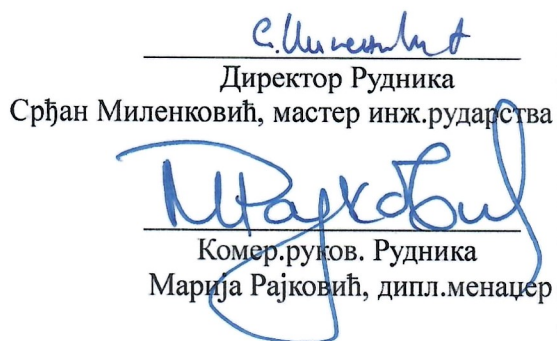 С. Миленковић
Директор Рудника
Срђан Миленковић, мастер инж.рударства
М Рајковић
Комер.руков. Рудника
Марија Рајковић, дипл.менаџер